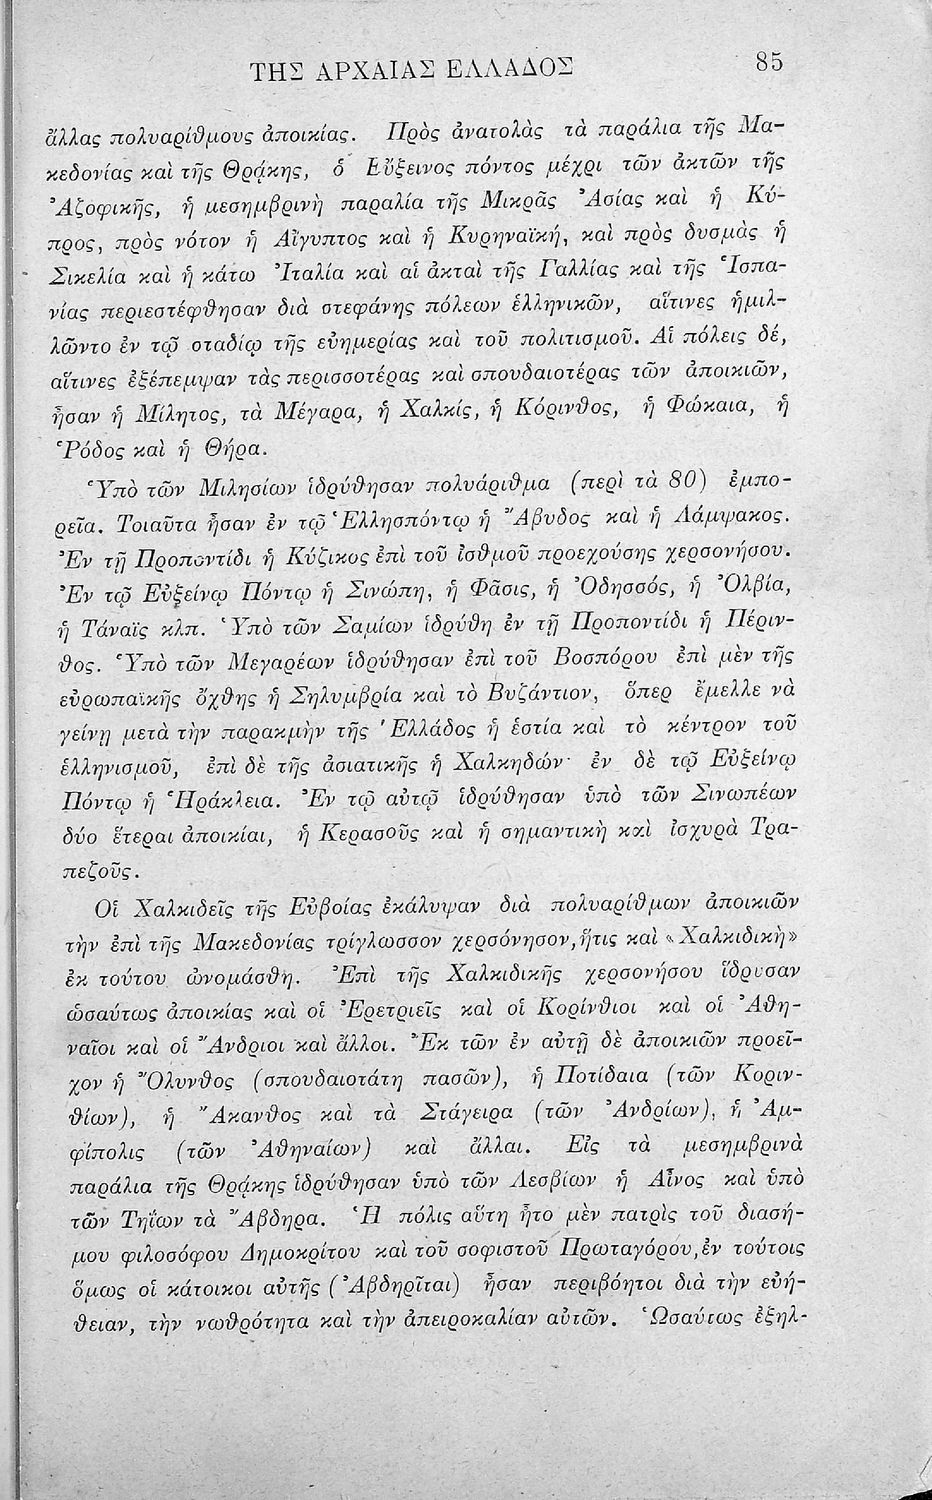 ΤΗΣ ΑΡΧΑΙΑΣ ΕΛΛΑΔΟΣ 85
ἄλλας πολυαρίθμους ἀποικίας. Πρὸς ἀνατολὰς τὰ παράλια τῆς Μα-
κεδονίας καὶ τῆς Θρᾴκης, ὁ Εὔξεινος πόντος μέχρι τῶν ἀκτῶν τῆς
Ἀζοφικῆς, ἡ μεσημβρινὴ παραλία τῆς Μικρᾶς Ἀσίας καὶ ἡ Κύ-
προς, πρὸς νότον ἡ Αἴγυπτος καὶ ἡ Κυρηναϊκή, καὶ πρὸς δυσμὰς ἡ
Σικελία καὶ ἡ κάτω Ἰταλία καὶ αἱ ἀκταὶ τῆς Γαλλίας καὶ τῆς Ἱσπα-
νίας περιεστέφθησαν διὰ στεφάνης πόλεων ἑλληνικῶν, αἵτινες ἡμιλ-
λῶντο ἐν τῷ σταδίῳ τῆς εὐημερίας καὶ τοῦ πολιτισμοῦ. Αἱ πόλεις δέ,
αἵτινες ἐξέπεμψαν τὰς περισσοτέρας καὶ σπουδαιοτέρας τῶν ἀποικιῶν,
ἦσαν ἡ Μίλητος, τὰ Μέγαρα, ἡ Χαλκίς, ἡ Κόρινθος, ἡ Φώκαια, ἡ
Ῥόδος καὶ ἡ Θήρα.
Ὑπὸ τῶν Μιλησίων ἱδρύθησαν πολυάριθμα (περὶ τὰ 80) ἐμπο-
ρεῖα. Τοιαῦτα ἦσαν ἐν τῷ Ἑλλησπόντῳ ἡ Ἄβυδος καὶ ἡ Λάμψακος.
Ἐν τῇ Προποντίδι ἡ Κύζικος ἐπὶ τοῦ ἰσθμοῦ προεχούσης χερσονήσου.
Ἐν τῷ Εὐξείνῳ Πόντῳ ἡ Σινώπη, ἡ Φᾶσις, ἡ Ὀδησσός, ἡ Ὀλβία,
ἡ Τάναϊς κλπ. Ὑπὸ τῶν Σαμίων ἱδρύθη ἐν τῇ Προποντίδι ἡ Πέριν-
θος. Ὑπὸ τῶν Μεγαρέων ἱδρύθησαν ἐπὶ τοῦ Βοσπόρου ἐπὶ μὲν τῆς
εὐρωπαϊκῆς ὄχθης ἡ Σηλυμβρία καὶ τὸ Βυζάντιον, ὅπερ ἔμελλε νὰ
γείνῃ μετὰ τὴν παρακμὴν τῆς Ἑλλάδος ἡ ἑστία καὶ τὸ κέντρον τοῦ
ἑλληνισμοῦ, ἐπὶ δὲ τῆς ἀσιατικῆς ἡ Χαλκηδών· ἐν δὲ τῷ Εὐξείνῳ
Πόντῳ ἡ Ἡράκλεια. Ἐν τῷ αὐτῷ ἱδρύθησαν ὑπὸ τῶν Σινωπέων
δύο ἕτεραι ἀποικίαι, ἡ Κερασοῦς καὶ ἡ σημαντικὴ καὶ ἰσχυρὰ Τρα-
πεζοῦς.
Οἱ Χαλκιδεῖς τῆς Εὐβοίας ἐκάλυψαν διὰ πολυαρίθμων ἀποικιῶν
τὴν ἐπὶ τῆς Μακεδονίας τρίγλωσσον χερσόνησον, ἥτις καὶ «Χαλκιδικὴ»
ἐκ τούτου ὠνομάσθη. Ἐπὶ τῆς Χαλκιδικῆς χερσονήσου ἵδρυσαν
ὡσαύτως ἀποικίας καὶ οἱ Ἐρετριεῖς καὶ οἱ Κορίνθιοι καὶ οἱ Ἀθη-
ναῖοι καὶ οἱ Ἄνδριοι καὶ ἄλλοι. Ἐκ τῶν ἐν αὐτῇ δὲ ἀποικιῶν προεῖ-
χον ἡ Ὄλυνθος (σπουδαιοτάτη πασῶν), ἡ Ποτίδαια (τῶν Κοριν-
θίων), ἡ Ἄκανθος καὶ τὰ Στάγειρα (τῶν Ἀνδρίων), ἡ Ἀμ-
φίπολις (τῶν Ἀθηναίων) καὶ ἄλλαι. Εἰς τὰ μεσημβρινὰ
παράλια τῆς Θρᾴκης ἱδρύθησαν ὑπὸ τῶν Λεσβίων ἡ Αἶνος καὶ ὑπὸ
τῶν Τηΐων τὰ Ἄβδηρα. Ἡ πόλις αὕτη ἦτο μὲν πατρὶς τοῦ διασή-
μου φιλοσόφου Δημοκρίτου καὶ τοῦ σοφιστοῦ Πρωταγόρου, ἐν τούτοις
ὅμως οἱ κάτοικοι αὐτῆς (Ἀβδηρῖται) ἦσαν περιβόητοι διὰ τὴν εὐή-
θειαν, τὴν νωθρότητα καὶ τὴν ἀπειροκαλίαν αὐτῶν. Ὡσαύτως ἐξηλ-